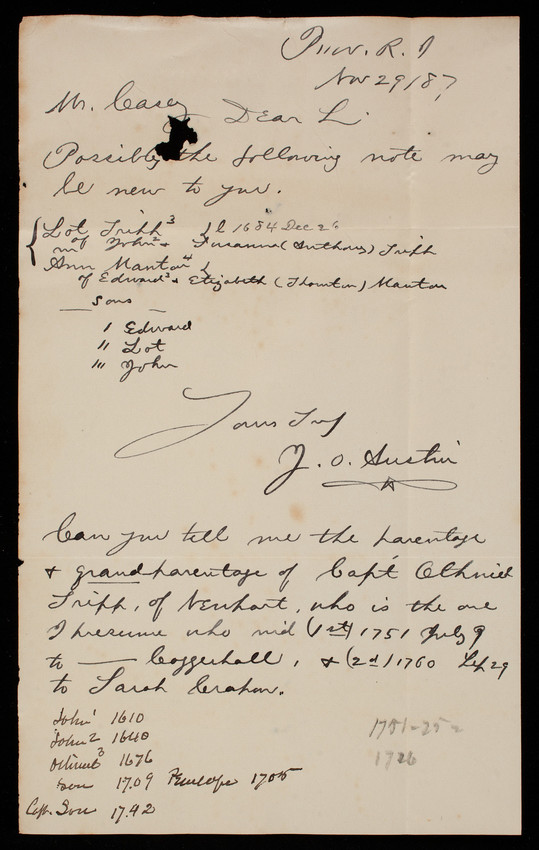 Prov. R. I
Nov 29/87
Mr. Casey Dear Sir
Possibly the following note may
be new to you.
Lot Tripp³ } b 1684 Dec 26
of John² + Susanna (Anthony) Tripp
m
Ann Manton⁴ }
of Edward³ + Elizabeth (Thornton) Manton
Sons
I Edward
II Lot
III John
Yours Truly
J. O. Austin
Can you tell me the parentage
& grand-parentage of Capt Othniel
Tripp, of Newport, who is the one
I presume who md (1st) 1751 July 9
to — Coggeshall, & (2d) 1760 Sep 29
to Sarah
John¹ 1610
John 2 1640
Othniel 3 1676
Son 1709 Penelope 1705
Capt. Son 1742
1751-25
1726